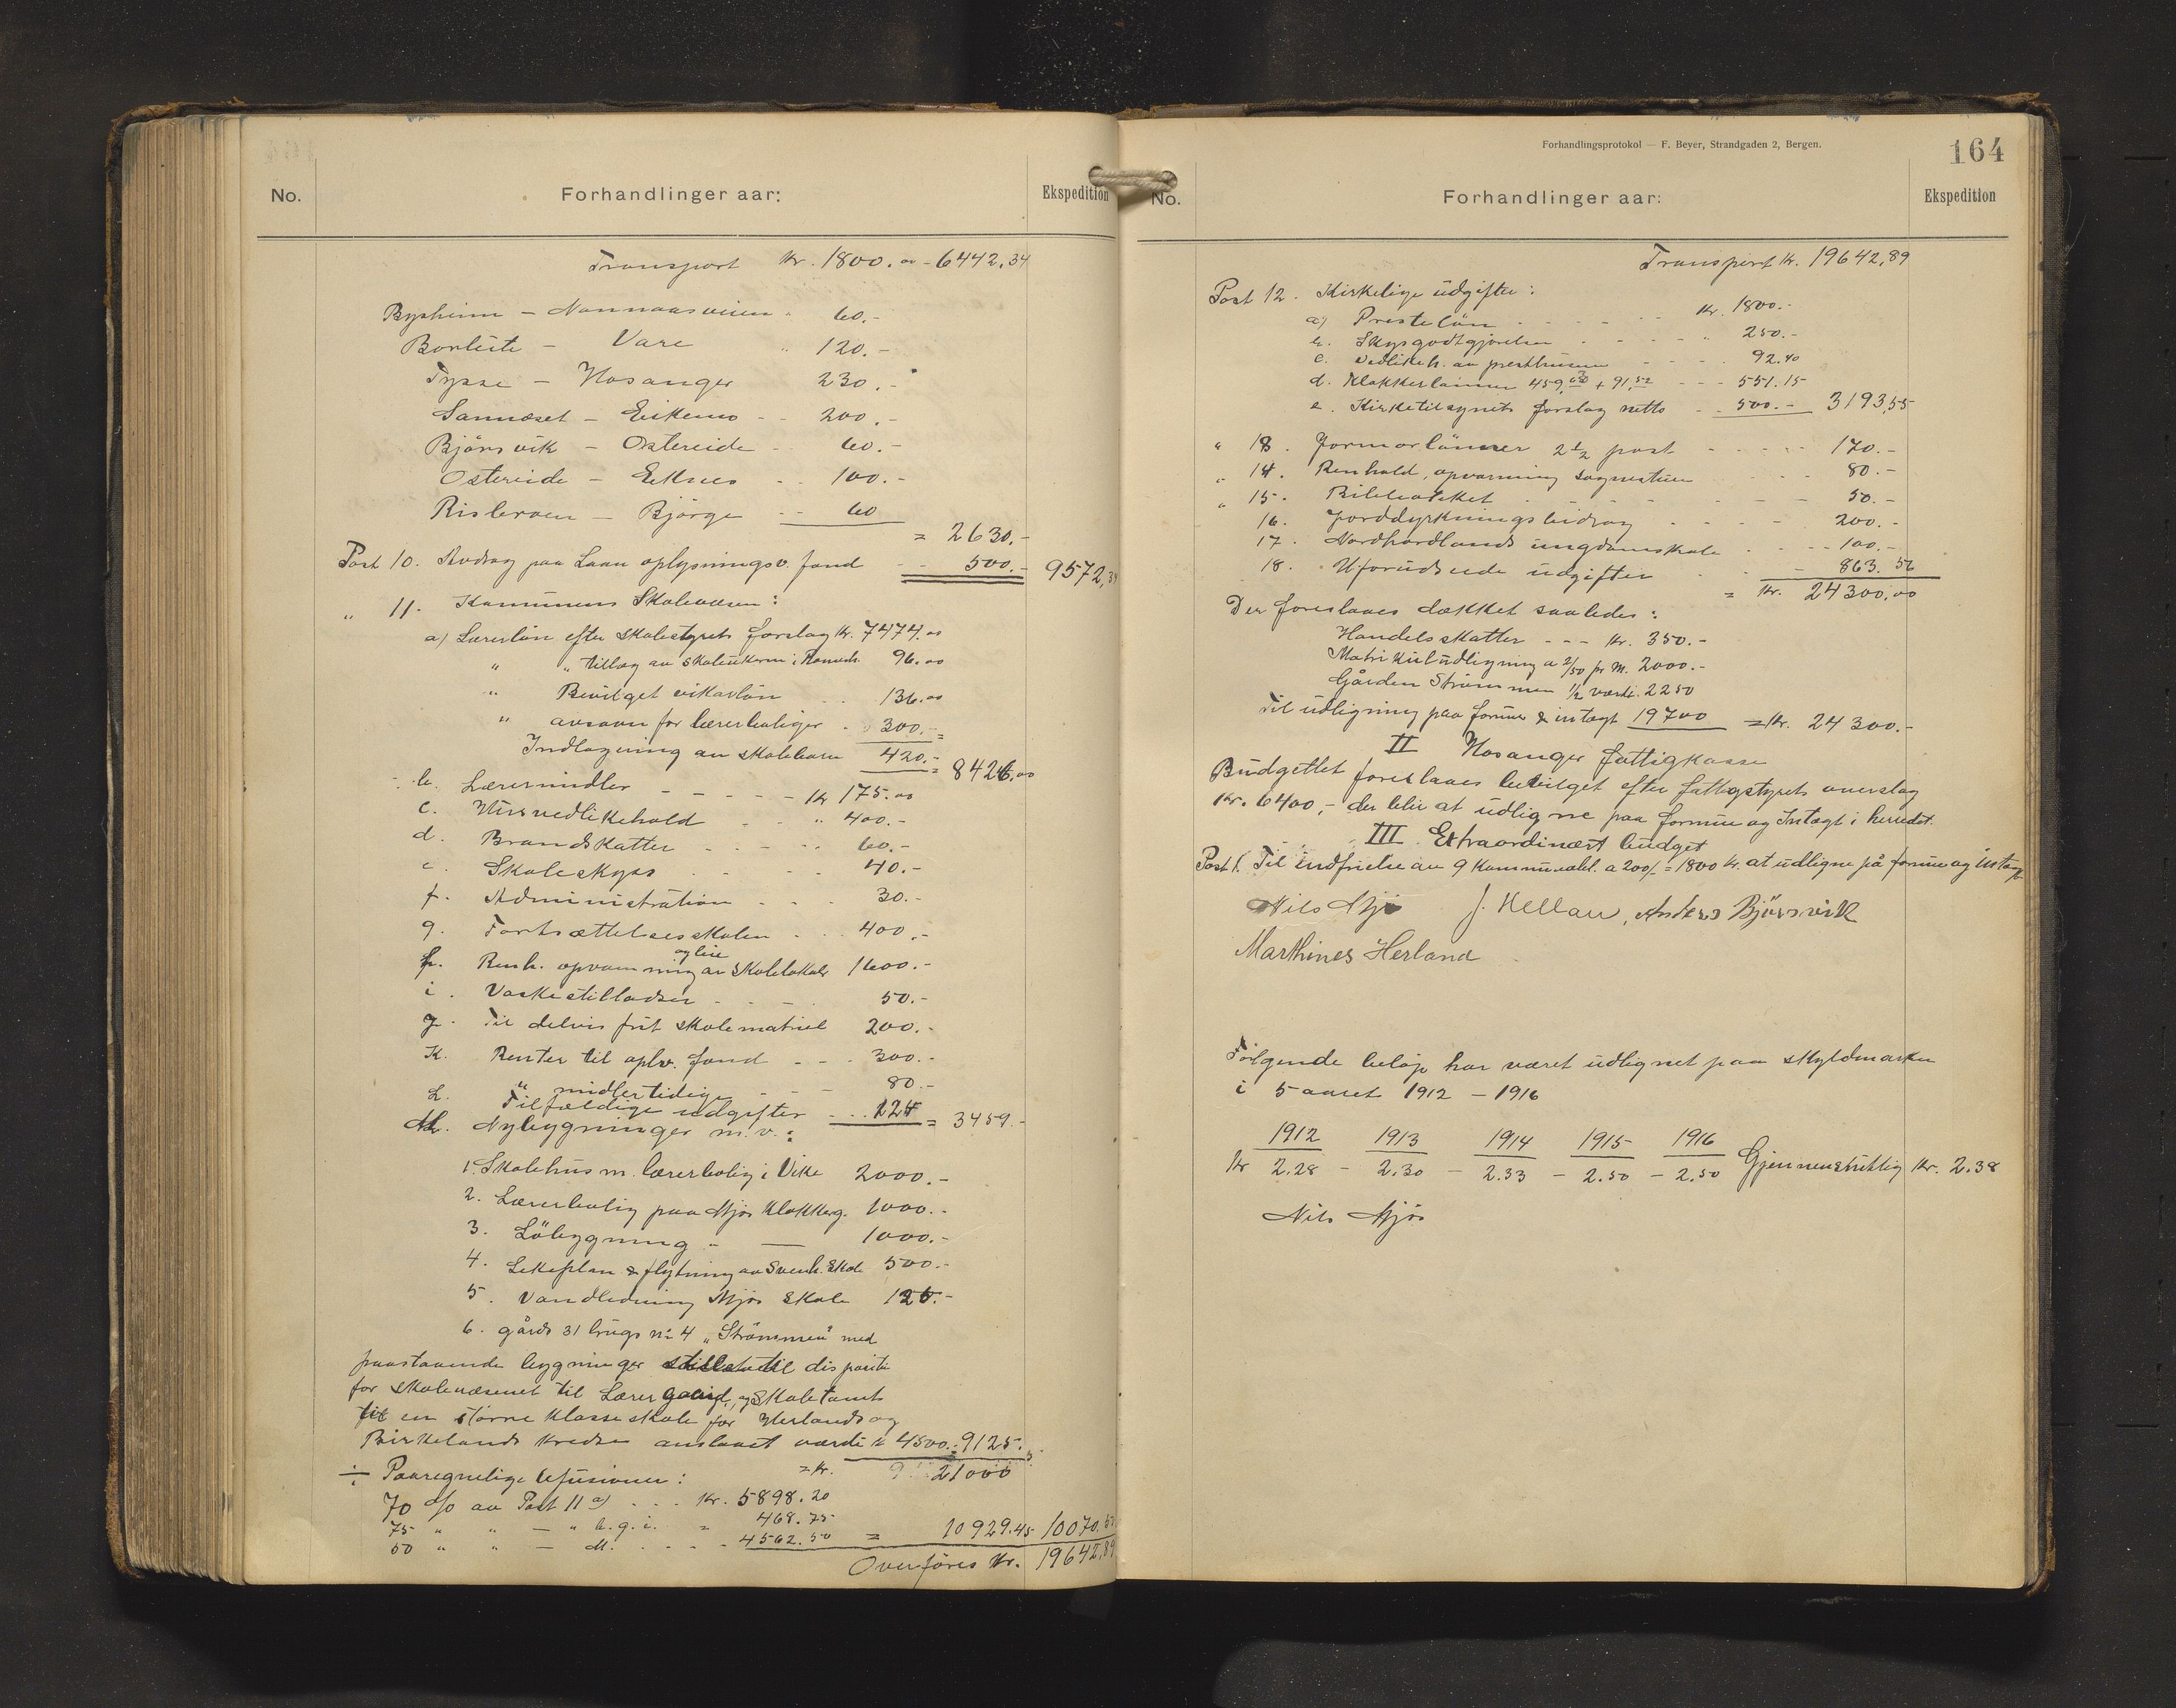 No. Forhandlinger aar: Ekspedition
Transport Kr. 1800.00 - 6442,34
Bysheim - Nonnaasveien " 60.-
Borleite - Vare " 120.-
Tysse - Hosanger 230.-
Sannæset - Eikemo - - 200.-
Björsvik - Ostereide - 60.-
Ostereide - Eknes - - 100.-
Risleroen - Bjørge - - 60
= 2630.-
Post 10. Avdrag paa Laan oplysningsv. fond - - 500.- 9572,34
" 11. Kommunens Skolevæsen:
a) Lærerløn efter skolestyrets forslag Kr. 7474.00
" " tillæg av skoleukerne i 96.00
" Bevilget vikarløn - - 136.00
" avsavn for lærerboliger - 300.-
Indlogering av skolebarn 420.- = 8426,00
b. Lærermidler - - - - - Kr 175.00
c. Husvedlikehold - - " 400.-
d. Brandskatter - - - - - 60.-
e. Skoleskyss - - - - 40.-
f. Administration - - - 30.-
g. Fortsættelsesskolen - - 400.-
og leie
h. Renh. opvarmning av skolelokaler 1600.-
i. Vaskestilladser - - - - 50.-
j. Til delvis frit skolematriel 200.-
K. Renter til oplv. fond - - - 300.-
" midlertidige - - 80.-
L. Tilfældige udgifter - - . 124 = 3459.-
M. Nybygninger m.v.:
1. Skolehus m. lærerbolig i Vike 2000.-
2. Lærerbolig paa Mjøs Klokkerg. 1000.-
3. Løbygning " — 1000.-
4. Lekeplan & flytning av Svenh. Skole 500.-
5. Vandledning Mjøs Skole 125.-
6. gårds 31 brugs no 4 „Strømmen" med
paastaaende bygninger stilles til disposition
for skolevæsenet til Lærergaard, og Skoletomt
til en større Klasseskole for Herlands og
Birkelands kredse anslaaet værdi K 4500.- = 9125.-
÷ Paaregnelige refusioner: = Kr. 21000
70 % av Post 11 a) - - - Kr. 5898.20
75 " " — " b.g.i. = 468.75
50 " " — M. - - - - 4562.50 = 10929.45 10070.55
Overføres Kr. 19642,89
Forhandlingsprotokol — F. Beyer, Strandgaden 2, Bergen.
164
No. Forhandlinger aar: Ekspedition
Transport Kr. 19642,89
Post 12. Kirkelige udgifter:
a) Presteløn - - - - - - Kr. 1800.-
b. Skysgodtgjørelse - - - - - " 250.-
c. Vedlikeh. av presthusene - - - - 92.40
d. Klokkerlønnen 459,63 + 91,52 - - - 551.15
e. Kirketilsynets forslag netto - - 500.- 3193,55
" 13. Jormorlønner 2 1/2 post - - - - - 170.-
" 14. Renhold, opvarming sognestuen - - - - 80.-
" 15. Biblioteket - - - - - - - - 50.-
16. Jorddyrkningsbidrag - - - - 200.-
17. Nordhordlands ungdomsskole - - - - 100.-
18. Uforudseede udgifter - - - 863.56
= Kr. 24300,00
Der foreslaaes dækket saaledes:
Handelsskatter - - - Kr. 350.-
Matrikuludligning a 2/50 pr M. 2000.-
Gården Strømmen 1/2 værdi. 2250
Til udligning paa formue & indtægt 19700 = Kr. 24300.-
II Hosanger fattigkasse
Budgettet foreslaaes bevilget efter fattigstyrets overslag
Kr. 6400,- der blir at udligne paa formue og Intægt i herredet.
III. Extraordinært budget
Post 1. Til indfrielse av 9 Kommuneobl. a 200/- = 1800 Kr. at udligne på formue og intægt
Nils Mjøs J. Hellan, Anders Björsvik
Marthines Herland
Følgende beløp har været udlignet paa skyldmarken
i 5 aaret 1912 - 1916
1912 1913 1914 1915 1916
Kr 2.28 - 2.30 - 2.33 - 2.50 - 2.50 Gjennemsnitlig Kr. 2.38
Nils Mjøs